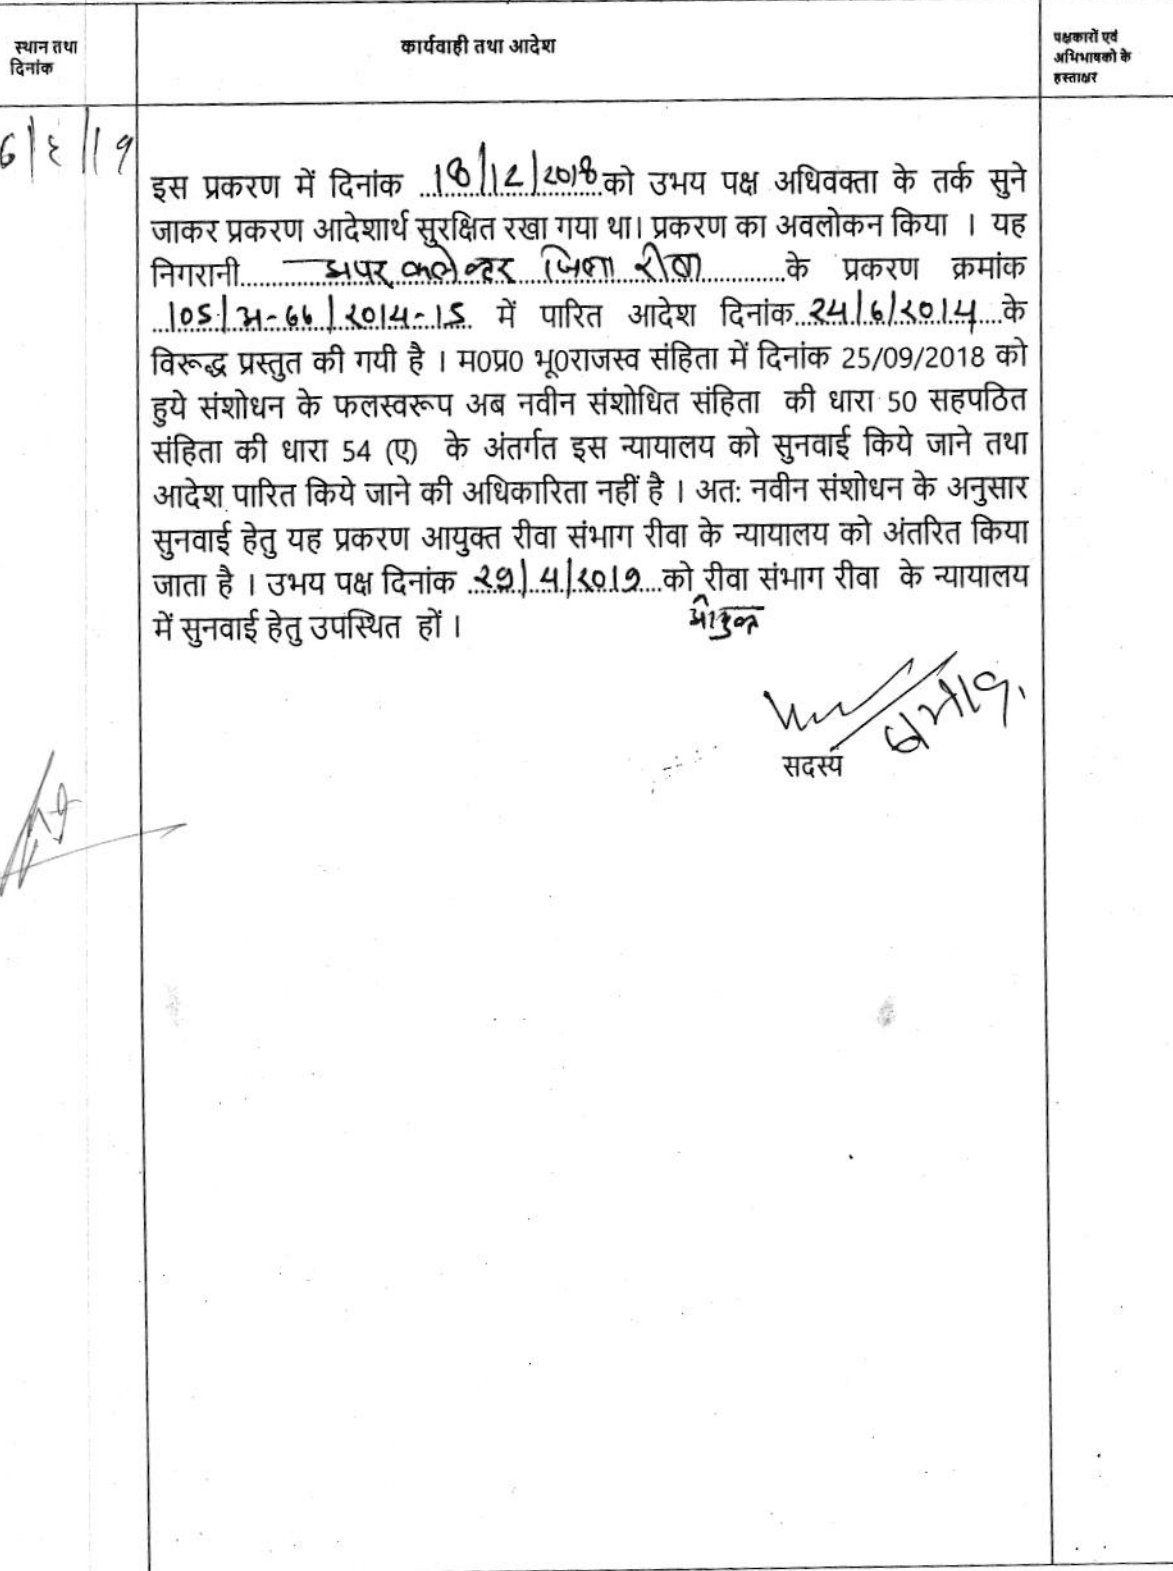 स्थान तथा
दिनांक
कार्यवाही तथा आदेश
पक्षकारों एवं
अभिभाषको के
हस्ताक्षर
इस प्रकरण में दिनांक 18/12/२०18 को उभय पक्ष अधिवक्ता के तर्क सुने
जाकर प्रकरण आदेशार्थ सुरक्षित रखा गया था। प्रकरण का अवलोकन किया । यह
निगरानी अपर कलेक्टर जिला रीवा के प्रकरण क्रमांक
105/अ-66/२०14-15 में पारित आदेश दिनांक 24/6/२०14 के
विरूद्ध प्रस्तुत की गयी है । म0प्र0 भू0राजस्व संहिता में दिनांक 25/09/2018 को
हुये संशोधन के फलस्वरूप अब नवीन संशोधित संहिता की धारा 50 सहपठित
संहिता की धारा 54 (ए) के अंतर्गत इस न्यायालय को सुनवाई किये जाने तथा
आदेश पारित किये जाने की अधिकारिता नहीं है । अत: नवीन संशोधन के अनुसार
सुनवाई हेतु यह प्रकरण आयुक्त रीवा संभाग रीवा के न्यायालय को अंतरित किया
जाता है । उभय पक्ष दिनांक को रीवा संभाग रीवा के न्यायालय
आयुक्त
में सुनवाई हेतु उपस्थित हों ।
सदस्य